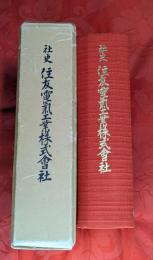 社史 住友電氣工業株式會社
社史 住友電氣工業株式會社